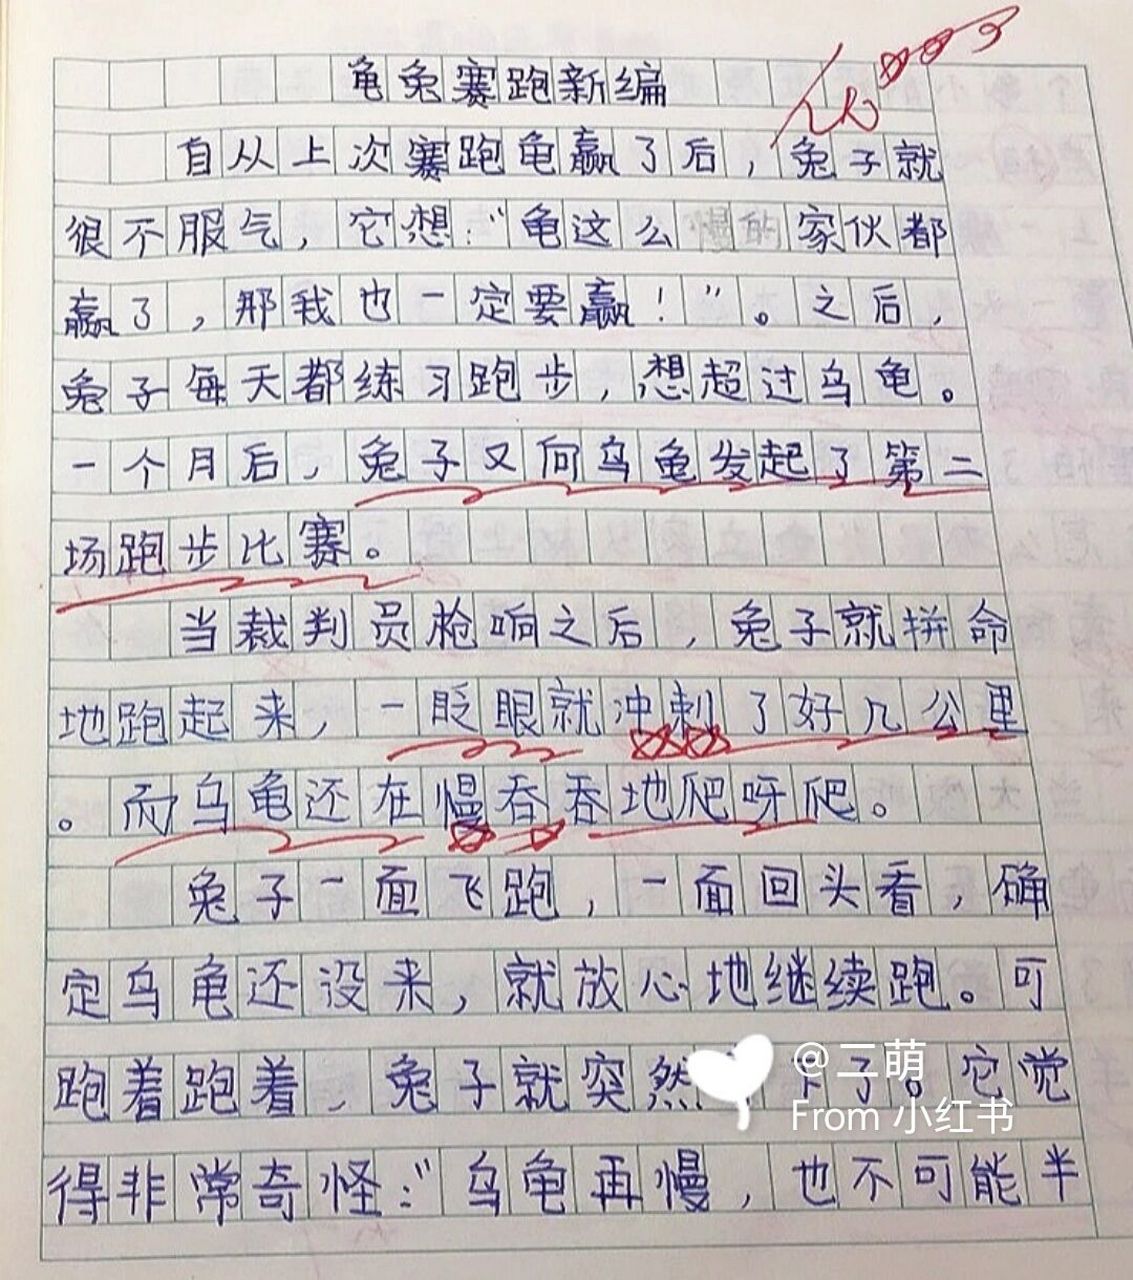 龟兔赛跑新编
自从上次赛跑龟赢了后，兔子就
很不服气，它想：“龟这么慢的家伙都
赢了，那我也一定要赢！”。之后，
兔子每天都练习跑步，想超过乌龟。
一个月后，兔子又向乌龟发起了第二
场跑步比赛。
当裁判员枪响之后，兔子就拼命
地跑起来，一眨眼就冲刺了好几公里
。而乌龟还在慢吞吞地爬呀爬。
兔子一面飞跑，一面回头看，确
定乌龟还没来，就放心地继续跑。可
跑着跑着，兔子就突然下了。它觉
得非常奇怪：“乌龟再慢，也不可能半
@二萌
From 小红书